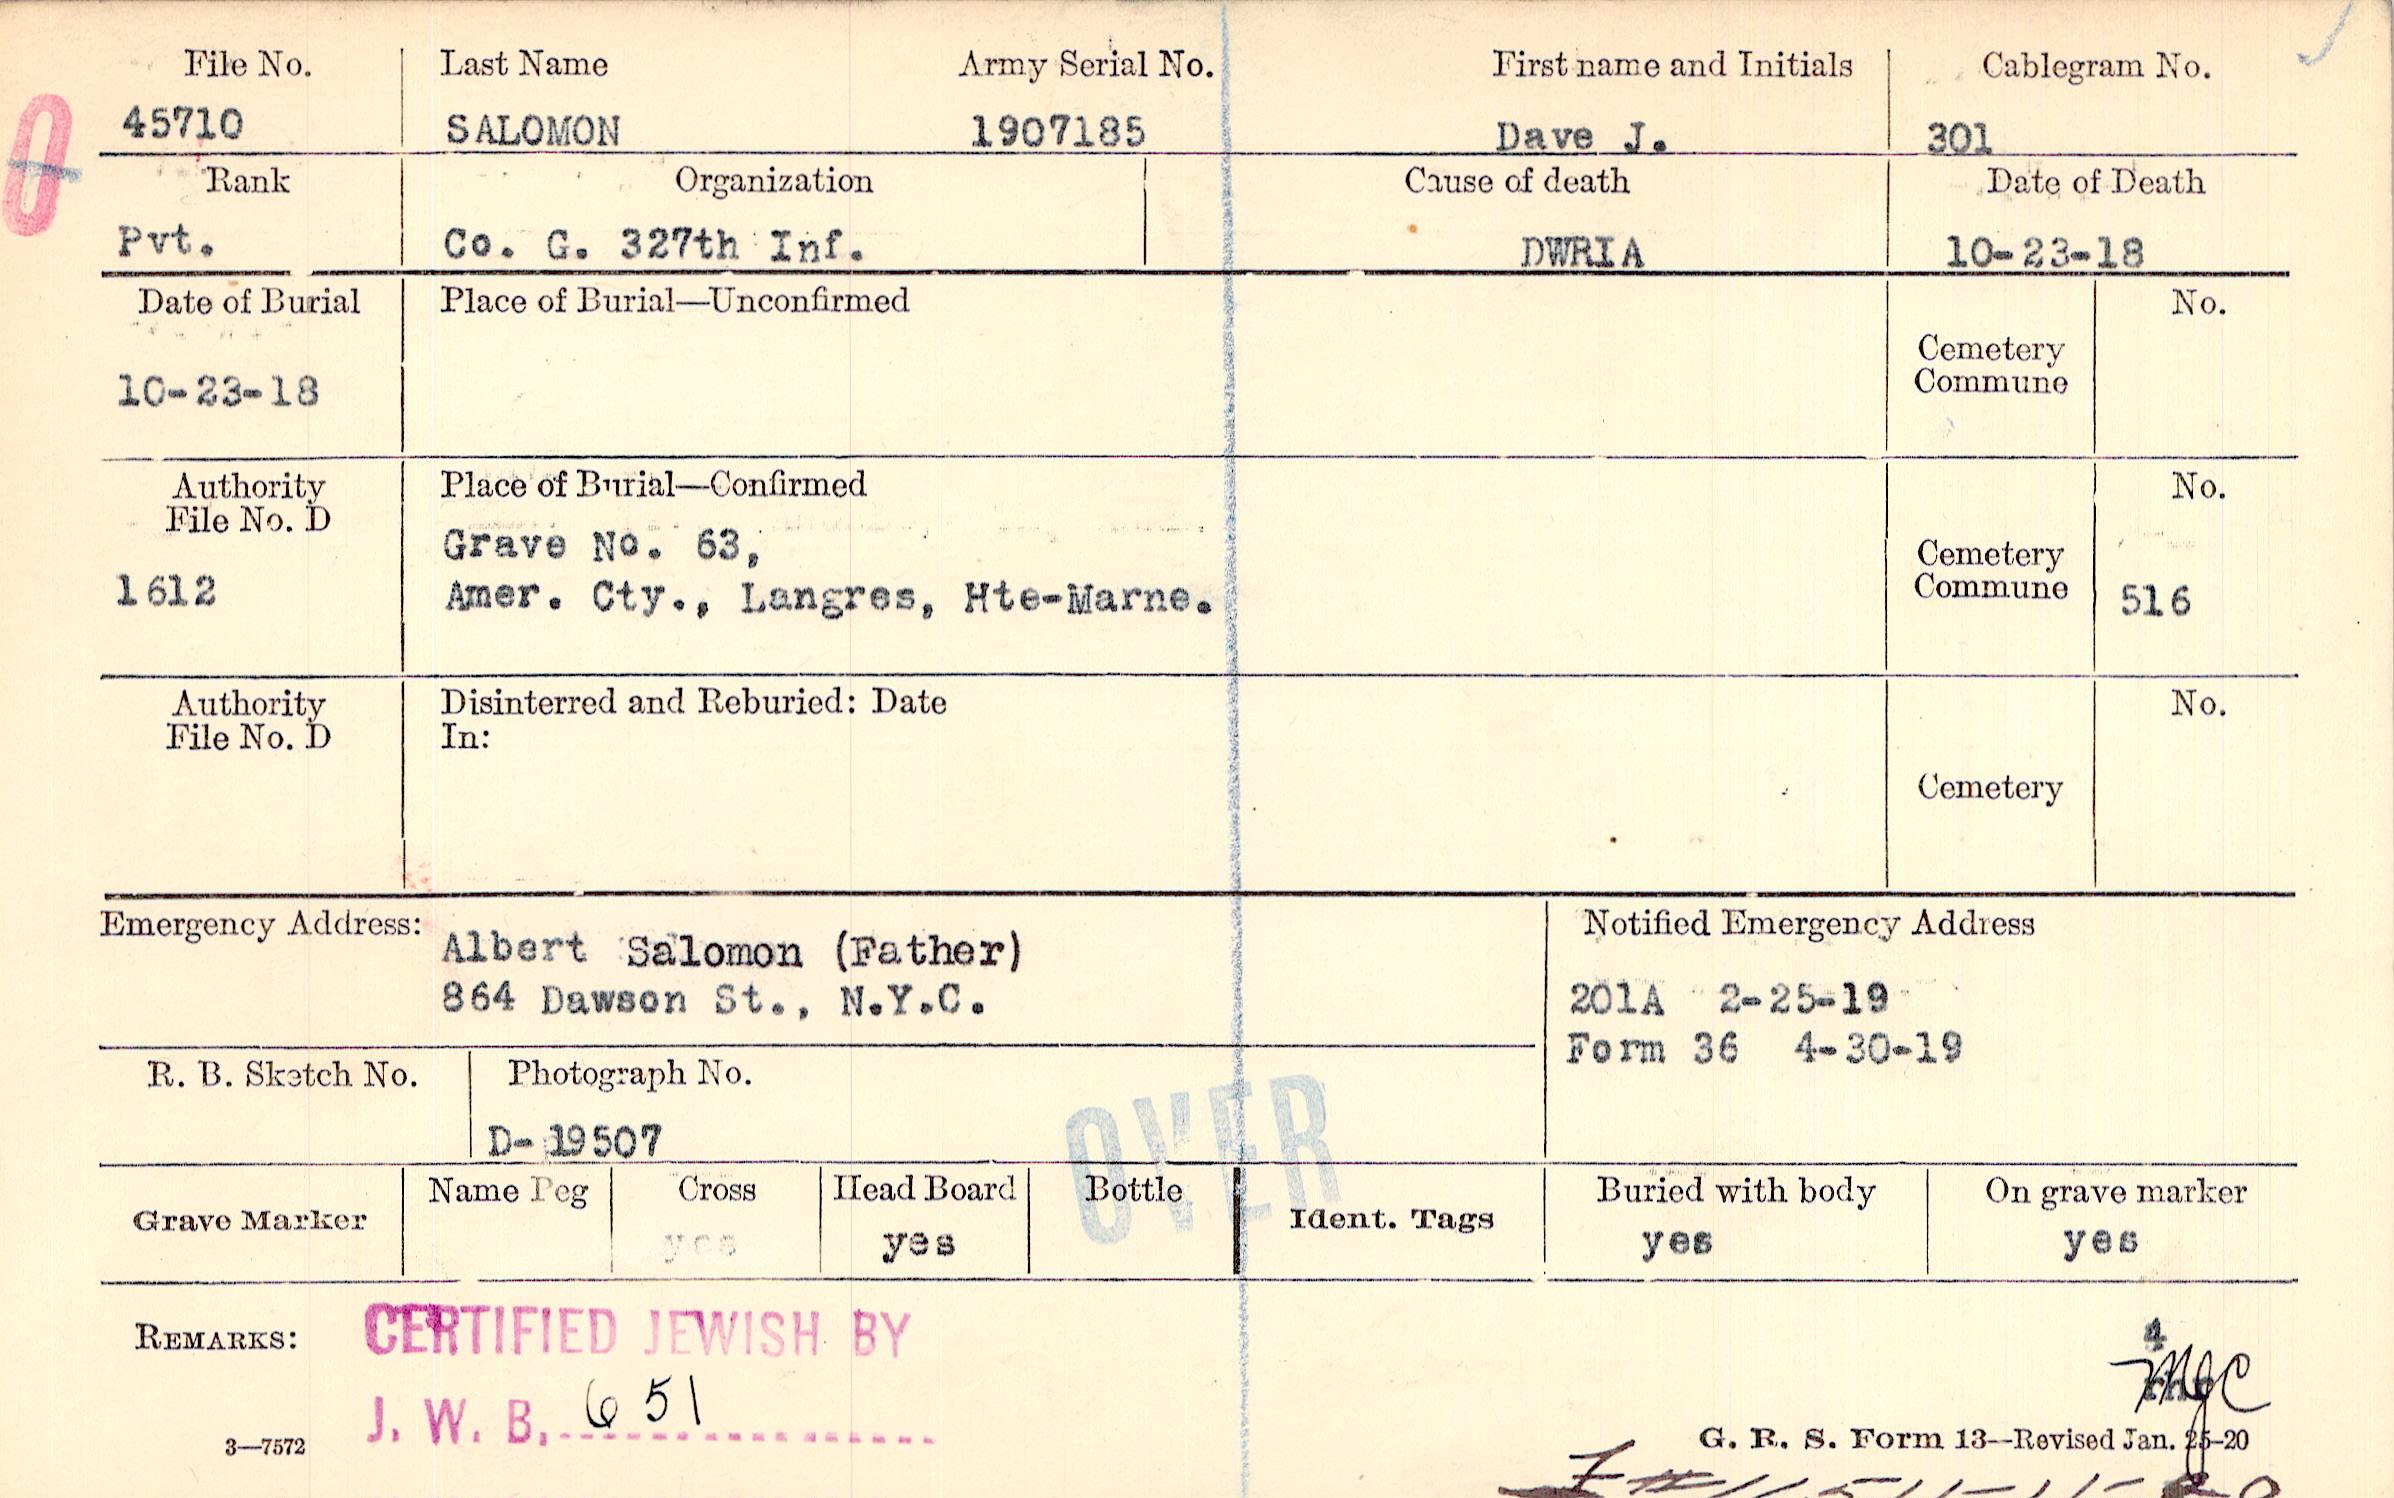 File No. Last Name Army Serial No. First name and Initials Cablegram No.
45710 SALOMON 1907185 Dave J. 301
Rank Organization Cause of death Date of Death
Pvt. Co. G. 327th Inf. DWRIA 10-23-18
Date of Burial Place of Burial—Unconfirmed No.
Cemetery
Commune
10-23-18
Authority Place of Burial—Confirmed No.
File No. D
Grave No. 63,
Cemetery
Commune
1612 Amer. Cty., Langres, Hte-Marne. 516
Authority Disinterred and Reburied: Date No.
File No. D In:
Cemetery
Emergency Address: Notified Emergency Address
Albert Salomon (Father)
864 Dawson St., N.Y.C. 201A 2-25-19
Form 36 4-30-19
R. B. Sketch No. Photograph No.
D- 19507
OVER
Name Peg Cross Head Board Bottle Buried with body On grave marker
Grave Marker Ident. Tags
yes yes yes yes
REMARKS: CERTIFIED JEWISH BY
4
J. W. B. 651
MJC
3—7572 G. R. S. Form 13—Revised Jan. 25-20